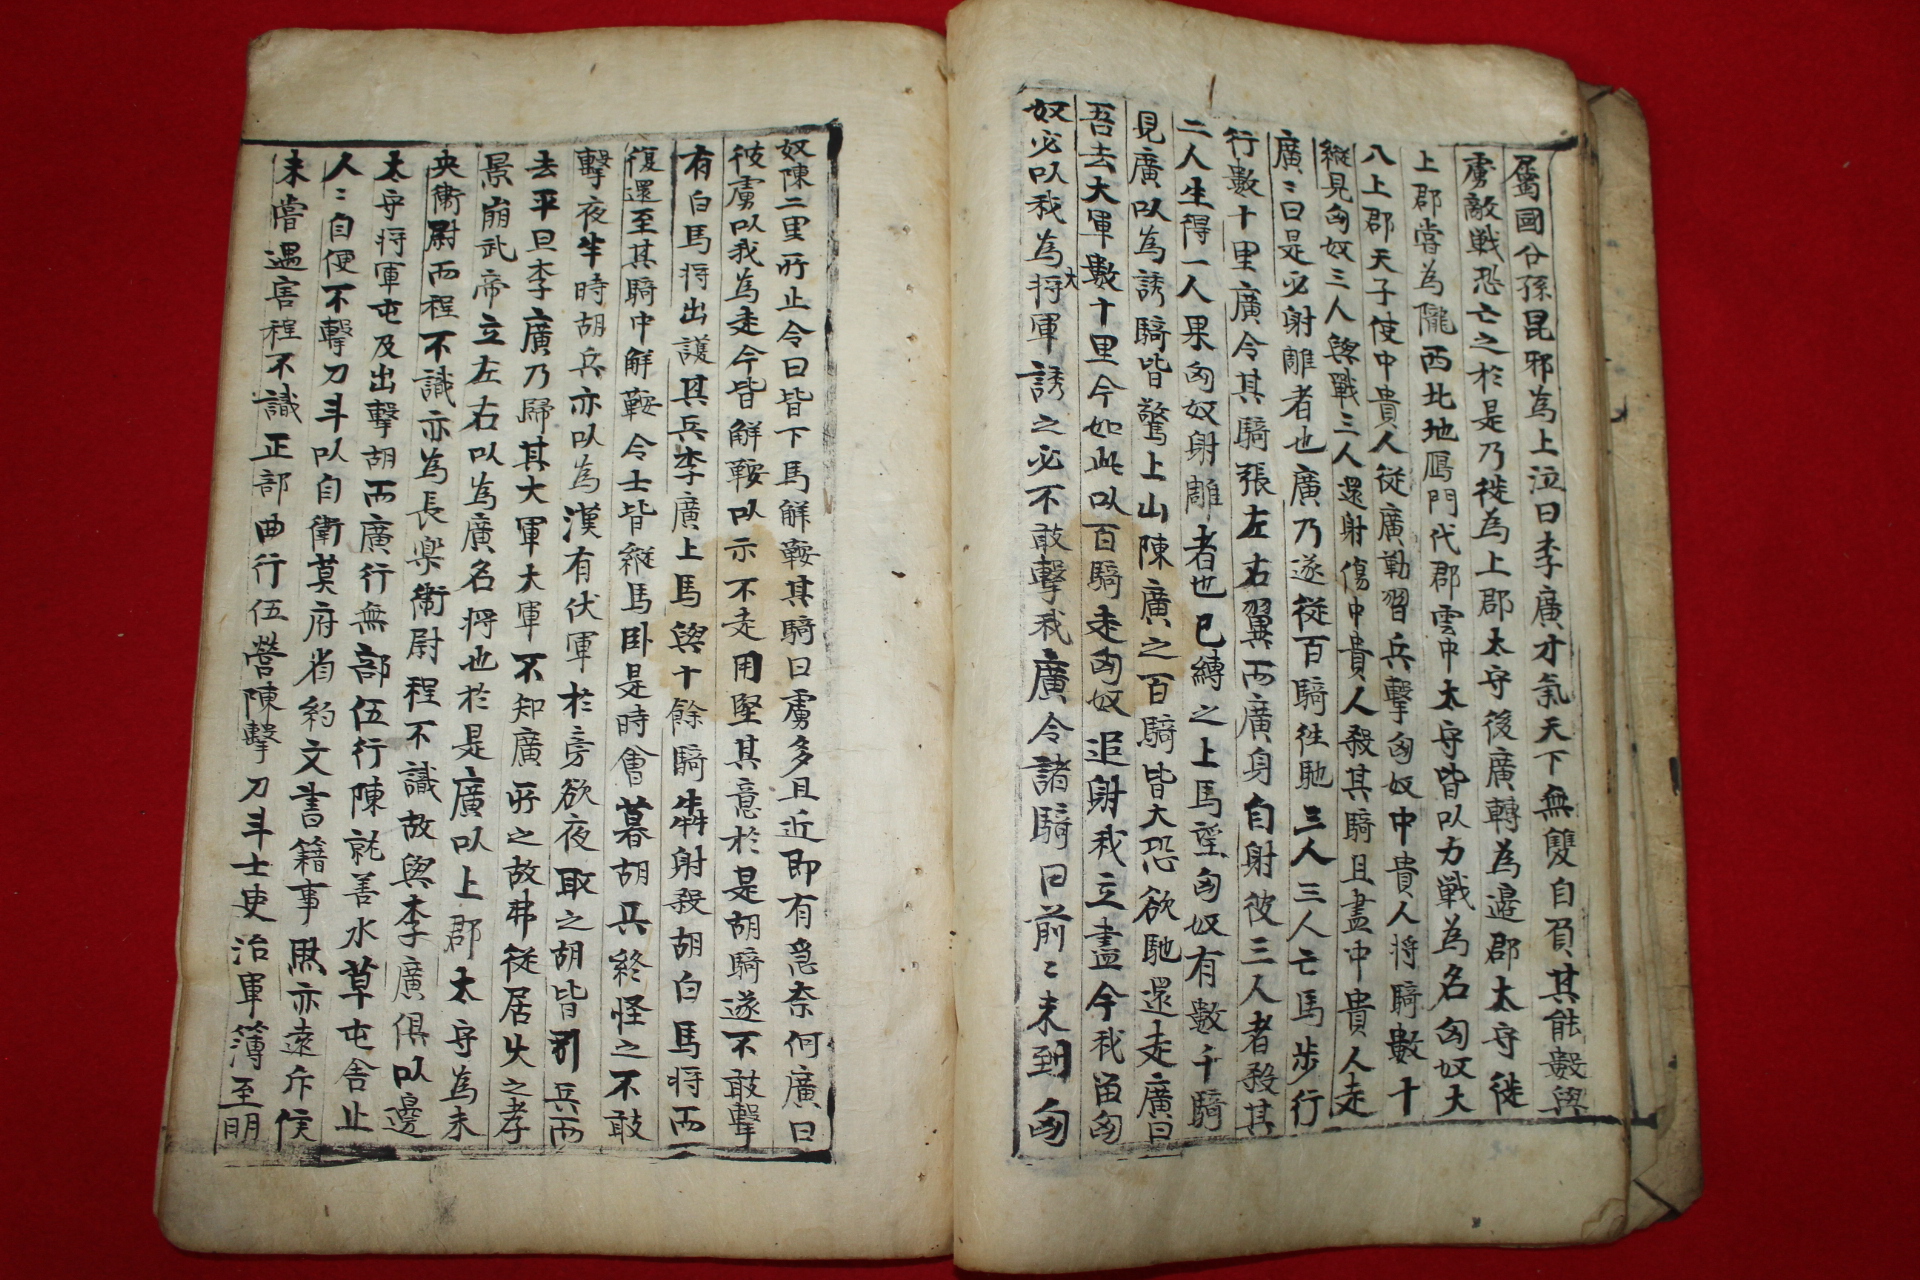 屬國公孫昆邪為上泣曰李廣才氣天下無雙自負其能數與
虜敵戰恐亡之於是乃徙為上郡太守後廣轉為邊郡太守徙
上郡嘗為隴西北地鴈門代郡雲中太守皆以力戰為名匈奴大
入上郡天子使中貴人從廣勒習兵擊匈奴中貴人将騎數十
縱見匈奴三人與戰三人還射傷中貴人殺其騎且盡中貴人走
廣〻曰是必射雕者也廣乃遂從百騎往馳三人三人亡馬步行
行數十里廣令其騎張左右翼而廣身自射彼三人者殺其
二人生得一人果匈奴射雕者也已縛之上馬望匈奴有數千騎
見廣以為誘騎皆驚上山陳廣之百騎皆大恐欲馳還走廣曰
吾去大軍數十里今如此以百騎走匈奴追射我立盡今我留匈
奴必以我為大将軍誘之必不敢擊我廣令諸騎曰前〻未到匈
奴陳二里所止令曰皆下馬解鞍其騎曰虜多且近即有急奈何廣曰
彼虜以我為走今皆解鞍以示不走用堅其意於是胡騎遂不敢擊
有白馬将出護其兵李廣上馬與十餘騎犇射殺胡白馬将而
復還至其騎中解鞍令士皆縱馬卧是時會暮胡兵終怪之不敢
擊夜半時胡兵亦以為漢有伏軍於旁欲夜取之胡皆引兵而
去平旦李廣乃歸其大軍大軍不知廣所之故弗從居久之孝
景崩武帝立左右以為廣名将也於是廣以上郡太守為未
央衛尉而程不識亦為長樂衛尉程不識故與李廣俱以邊
太守将軍屯及出擊胡而廣行無部伍行陳就善水草屯舍止
人〻自便不擊刀斗以自衛莫府省約文書籍事然亦遠斥候
未嘗遇害程不識正部曲行伍營陳擊刀斗士吏治軍簿至明